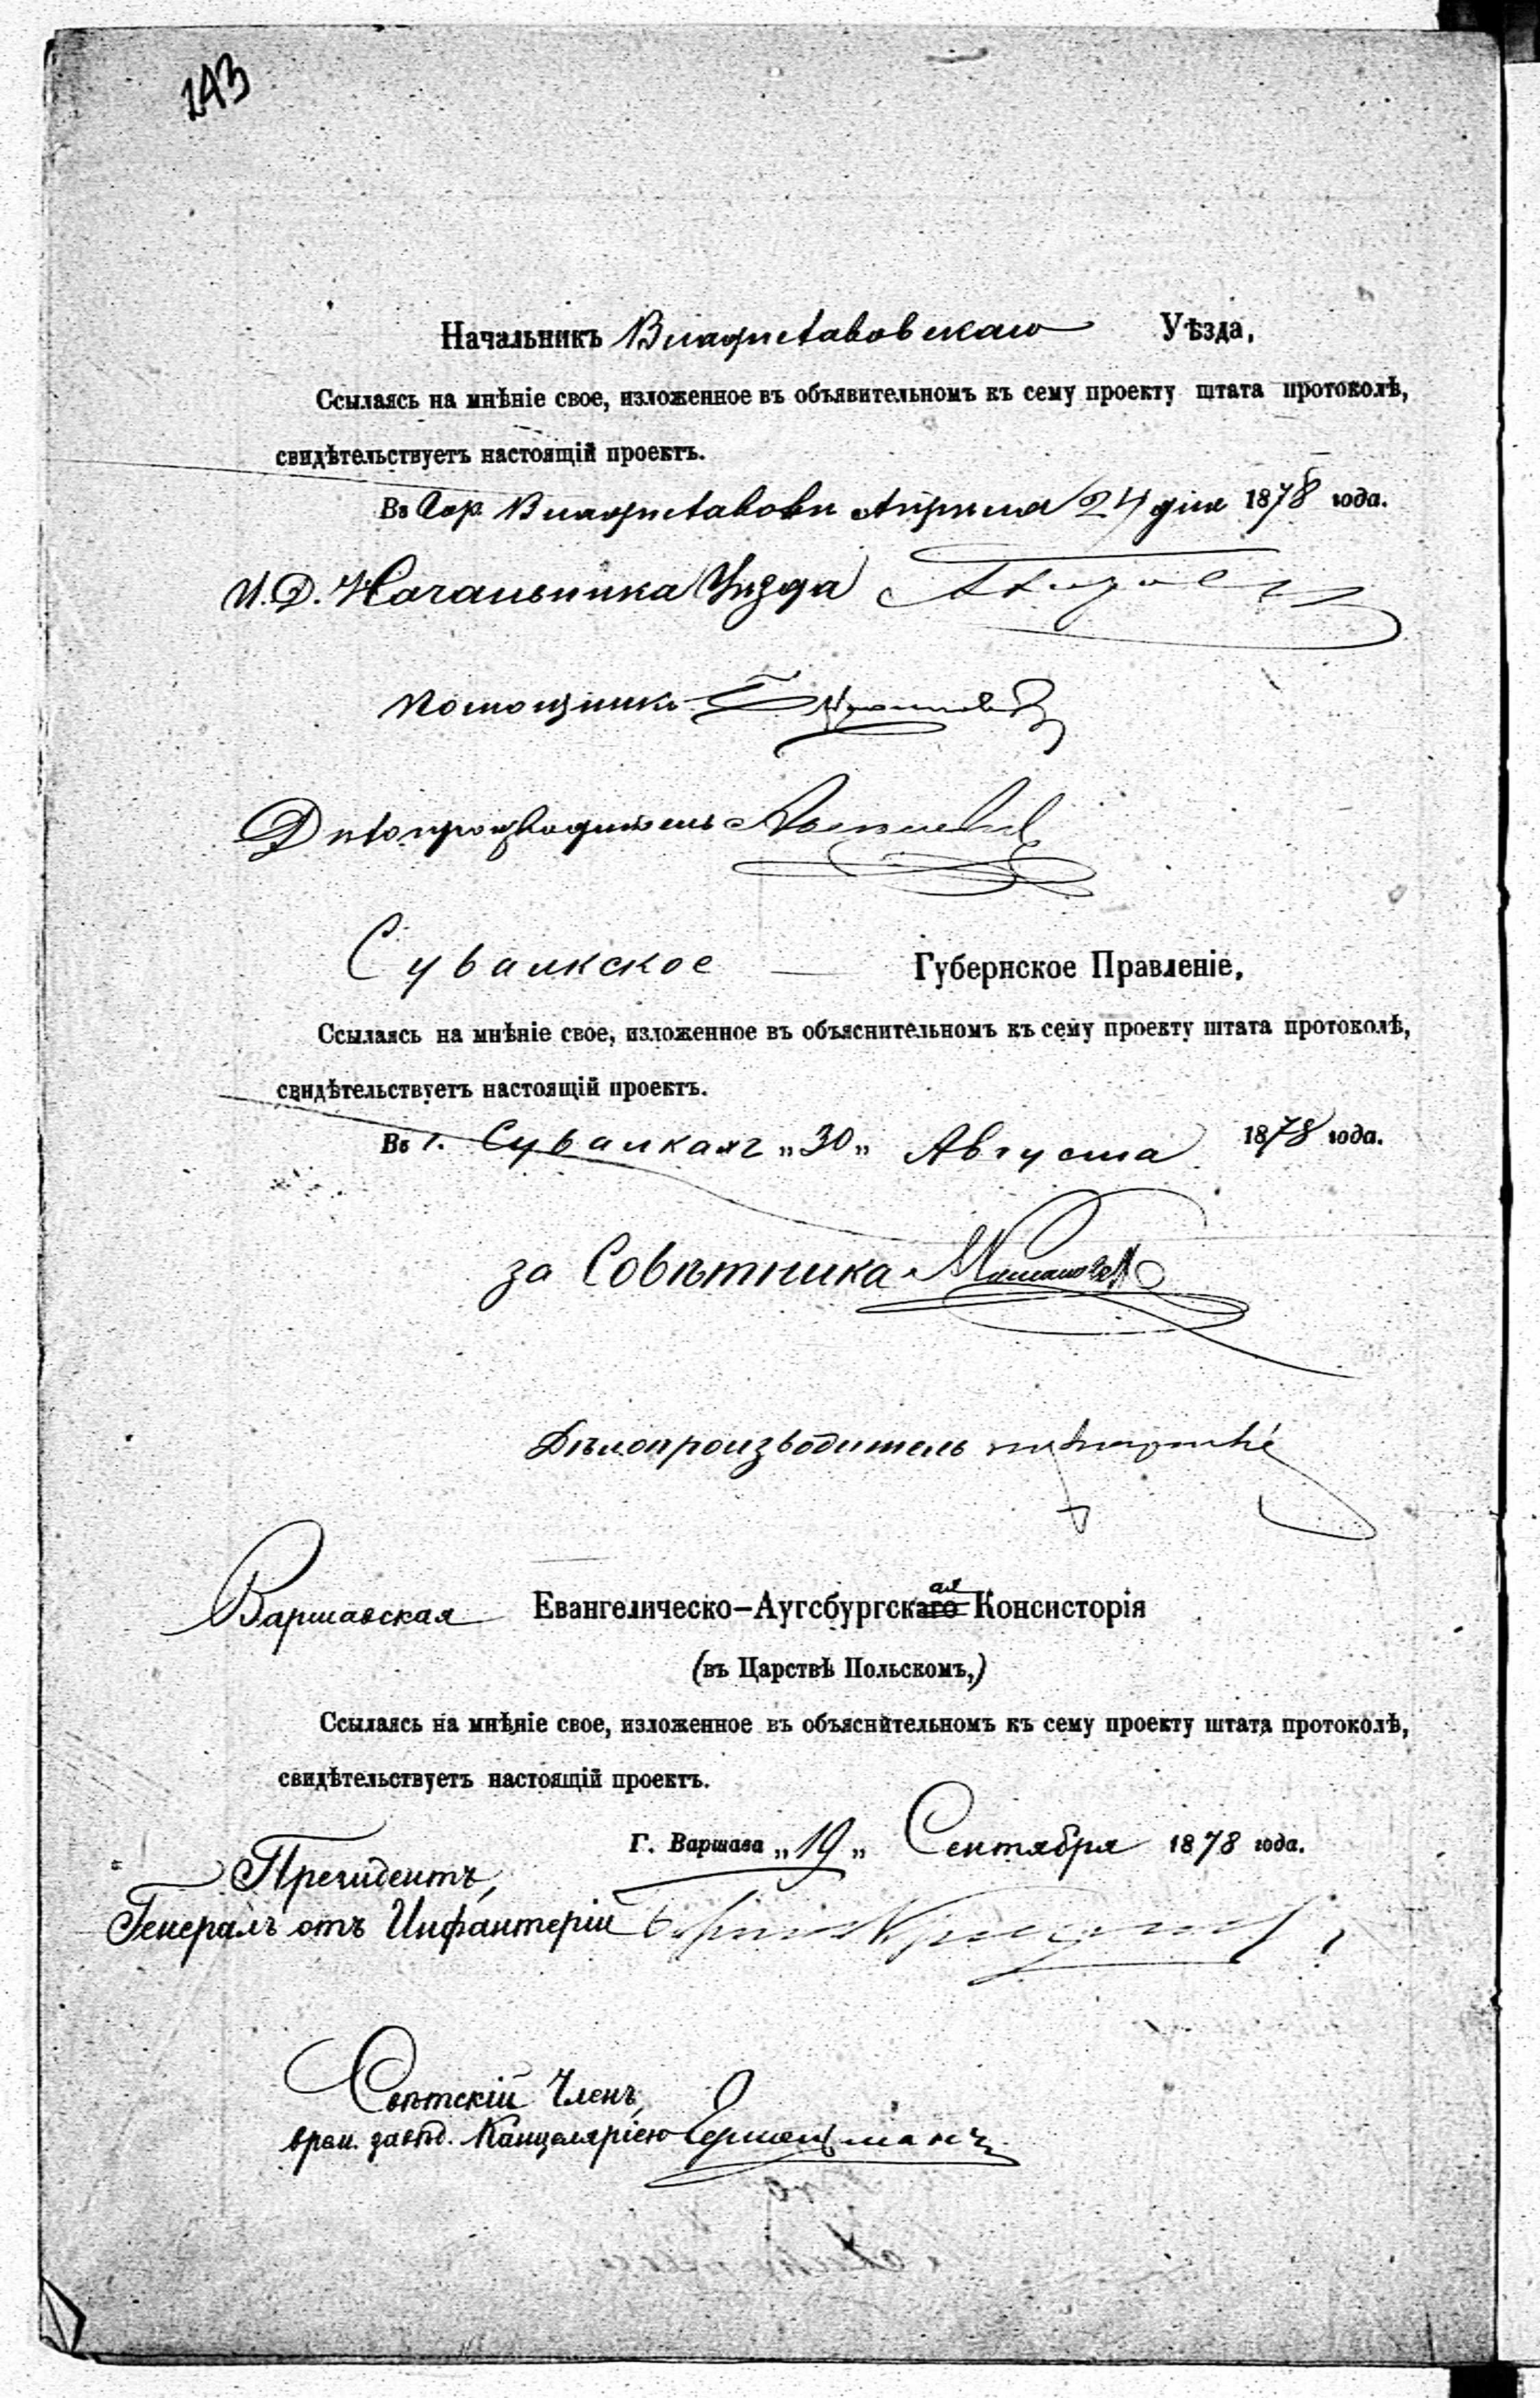 243
Начальникъ Владиславовскаго Уѣзда,
Ссылаясь на мнѣніе свое, изложенное въ объявительномъ къ сему проекту штата протоколѣ,
свидѣтельствуетъ настоящій проектъ.
Въ Гор Владиславовѣ Апрѣля 24 дня 1878 года.
И. Д. Начальника Уѣзда
Помощникъ
Дѣлопроизводитель
Сувалкское Губернское Правленіе,
Ссылаясь на мнѣніе свое, изложенное въ объяснительномъ къ сему проекту штата протоколѣ,
свидѣтельствуетъ настоящій проектъ.
Въ г. Сувалкахъ „30„ Августа 1878 года.
за Совѣтника
Дѣлопроизводитель
Варшавская Евангелическо-Аугсбургская Консисторія
(въ Царствѣ Польскомъ,)
Ссылаясь на мнѣніе свое, изложенное въ объяснительномъ къ сему проекту штата протоколѣ,
свидѣтельствуетъ настоящій проектъ.
Г. Варшава „19„ Сентября 1878 года.
Президентъ,
Генералъ отъ Инфантеріи
Свѣтскій Членъ,
врем. завѣд. Канцеляріею